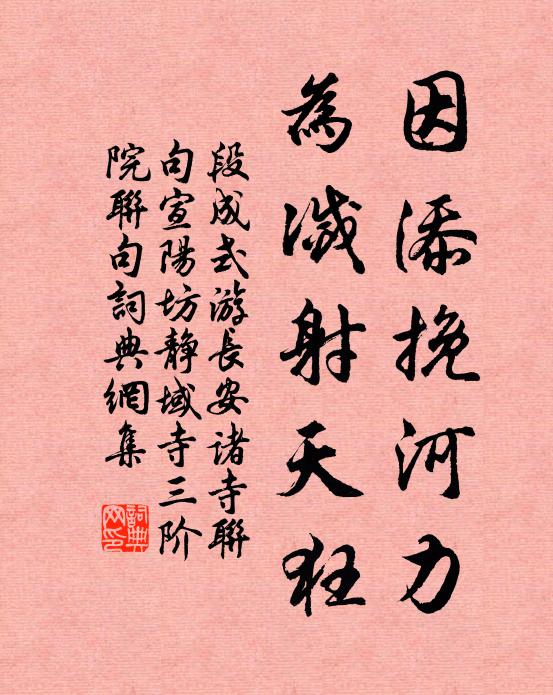 因添挽河力
為滅射天狂
段成式游長安诸寺聯
句宣陽坊静域寺三阶
院聯句詞典網集
詞典網印